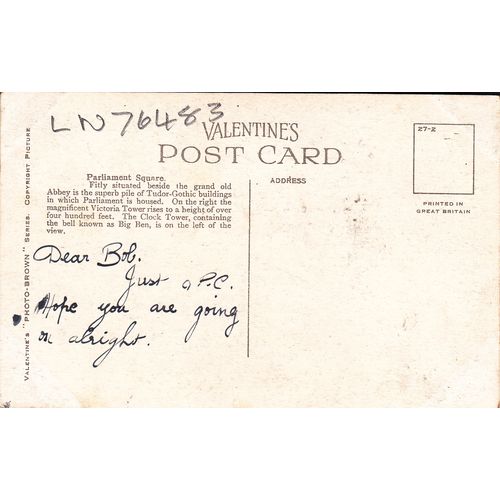 LN76483
VALENTINE'S
POST CARD
27-Z
PRINTED IN
GREAT BRITAIN
ADDRESS
Parliament Square.
Fitly situated beside the grand old
Abbey is the superb pile of Tudor-Gothic buildings
in which Parliament is housed. On the right the
magnificent Victoria Tower rises to a height of over
four hundred feet. The Clock Tower, containing
the bell known as Big Ben, is on the left of the
view.
Dear Bob.
Just a P.C.
Hope you are going
on alright.
VALENTINE'S "PHOTO-BROWN" SERIES. COPYRIGHT PICTURE